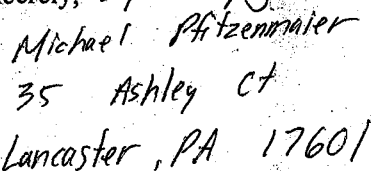 Michael Pfitzenmaier
35 Ashley Ct
Lancaster, PA 17601